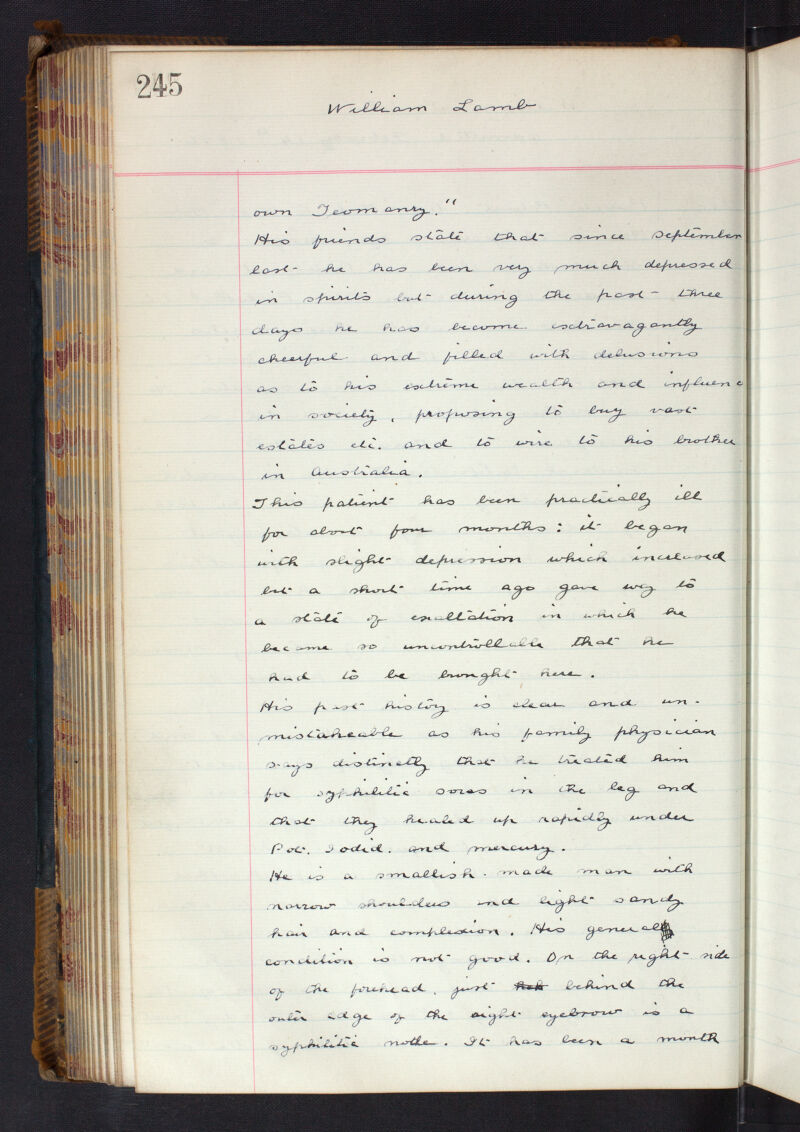 245
William Lamb
own Yeomanry."
His friends state that since September
last he has been very much depressed
in spirits but during the past three
days he has become extravagantly
cheerful and filled with delusions
as to his extreme wealth and influenc
in society, proposing to buy vast
estates etc. and to wire to his brother
in Australia.
This patient has been practically ill
for about four months: it began
with slight depression which increased
but a short time ago gave way to
a state of exaltation in which he
became so uncontrollable that he
had to be brought here.
His past history is clear and un-
mistakeable as his family physician
says distinctly that he treated him
for syphilitic sores in the leg and
that they healed up rapidly under
Pot. Iodid. and mercury.
He is a smallish made man with
narrow shoulders and light sandy
hair and complexion. His general
condition is not good. On the right side
of the forehead, just behind the
outer edge of the right eyebrow is a
syphilitic node. It has been a month